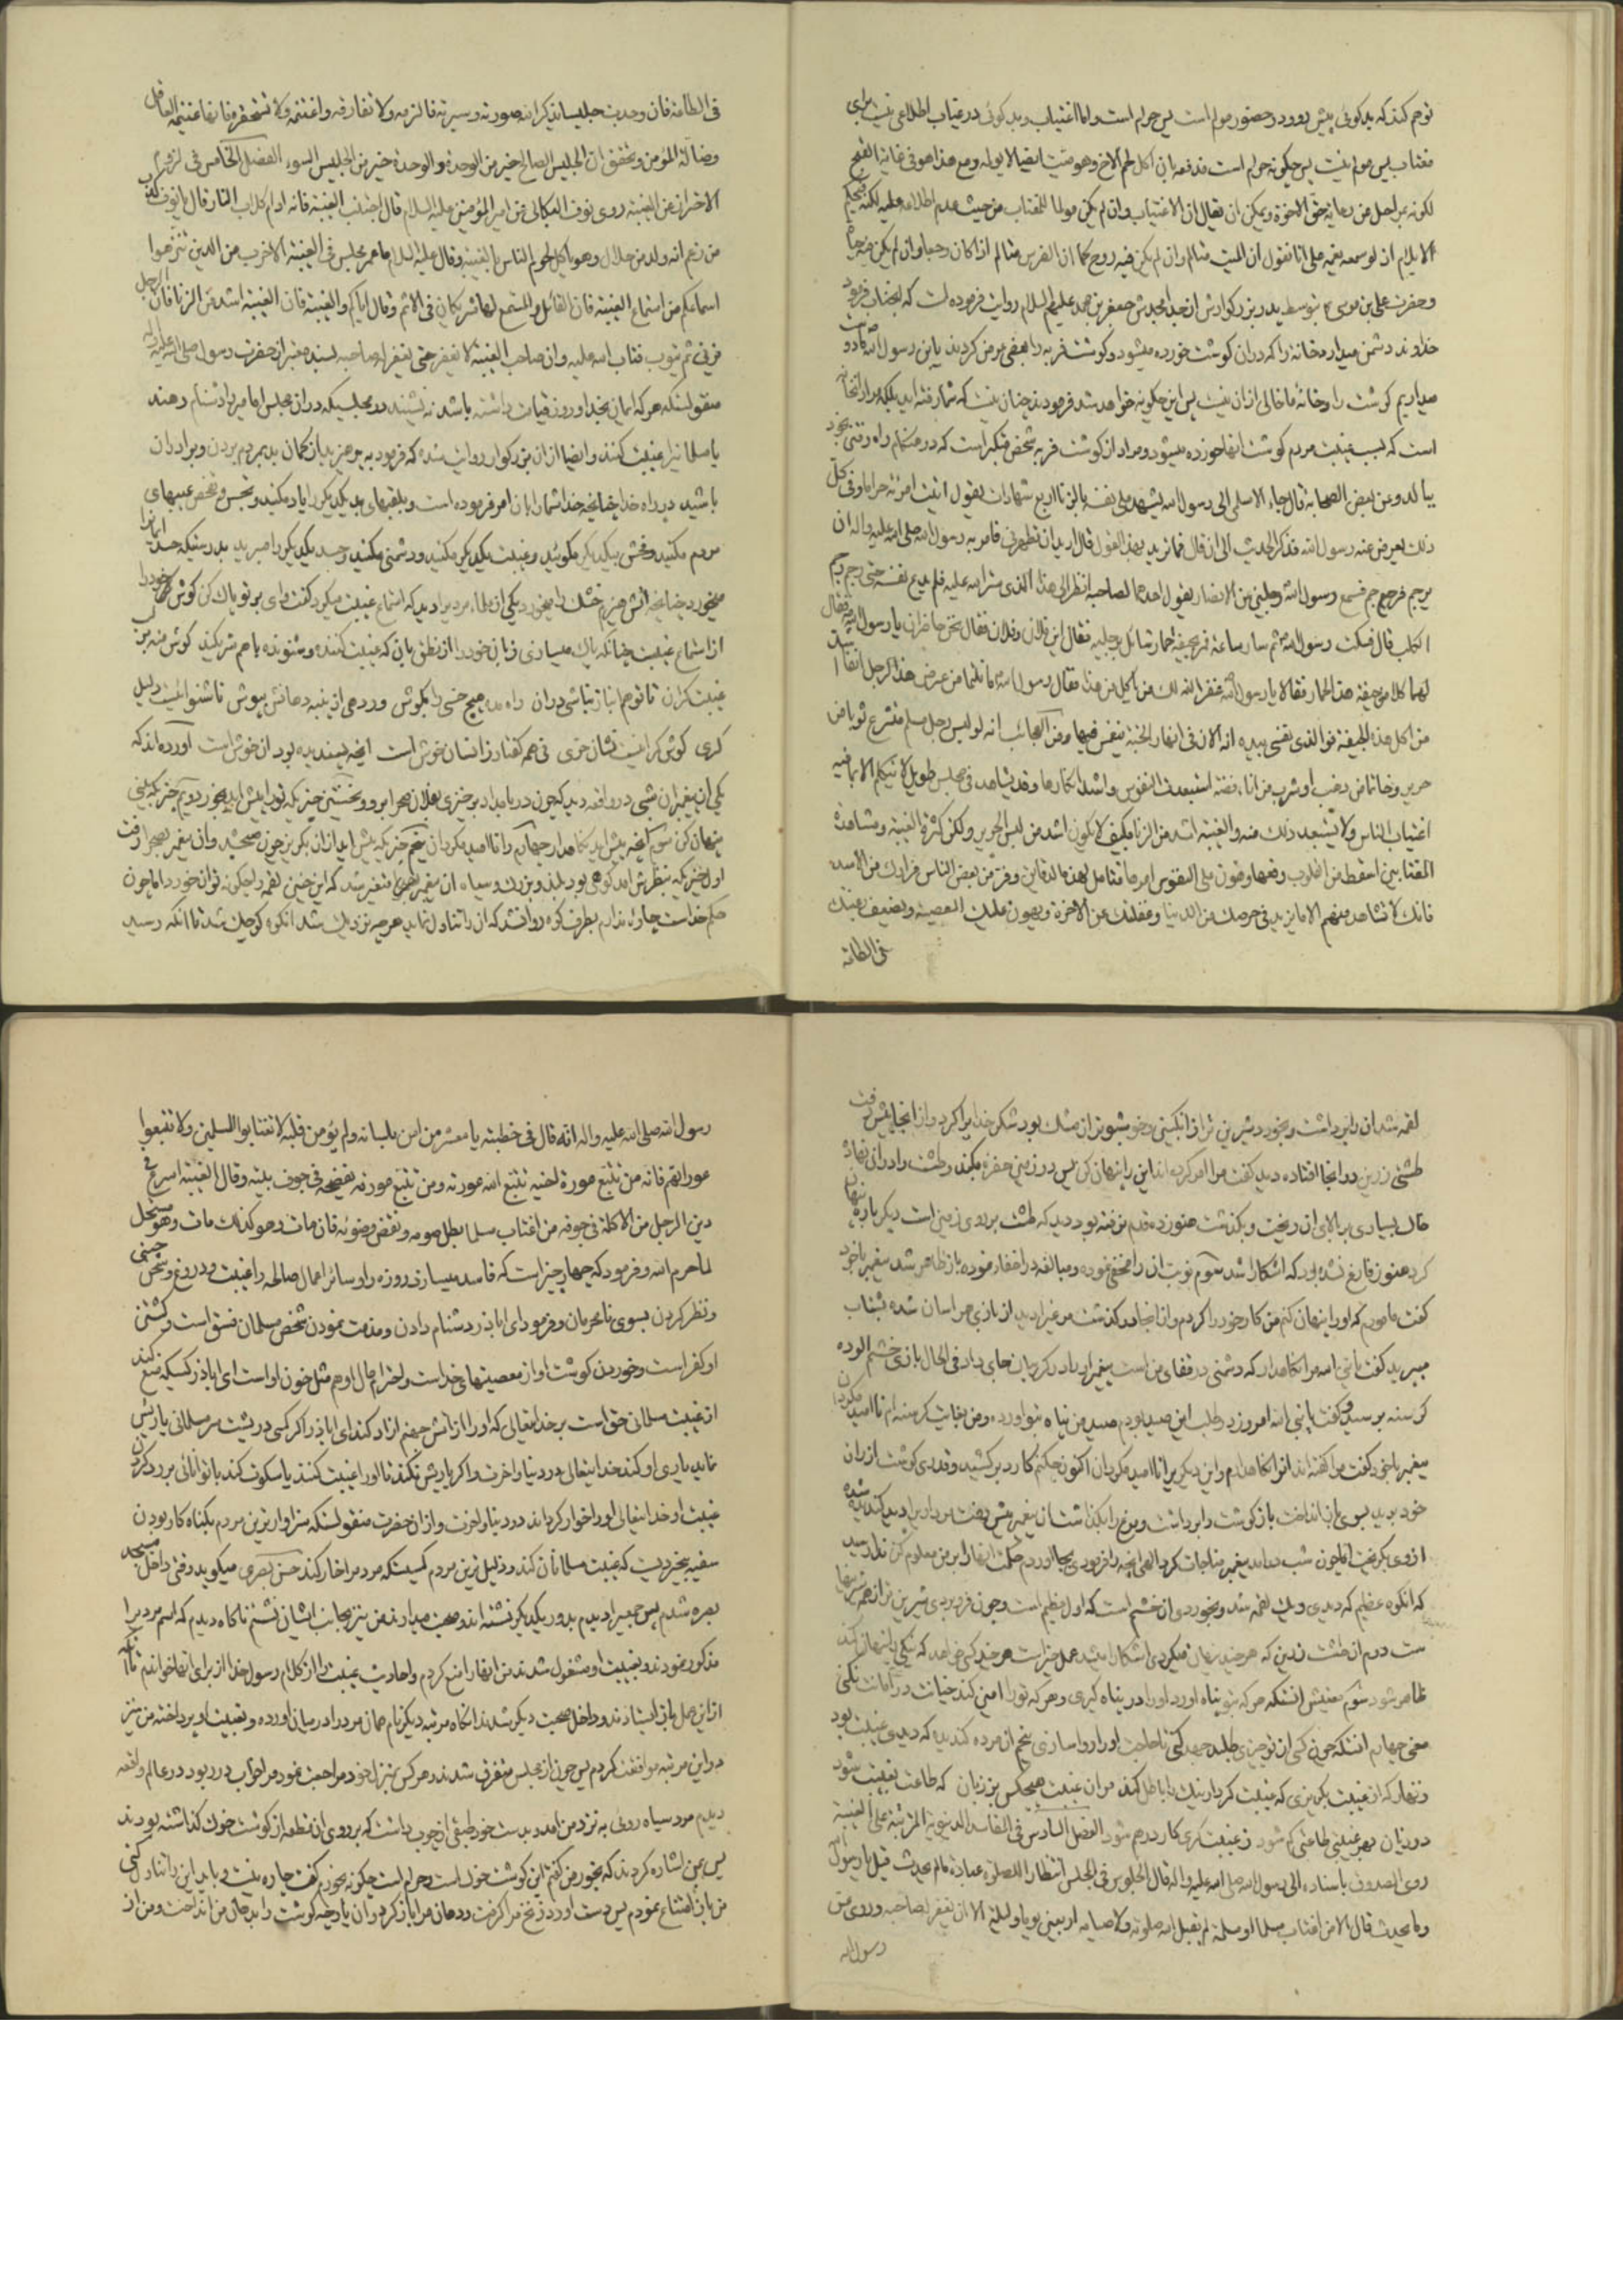 توهم کند که بدکوئی پیش رو و در حضور حرام است پس حرام است و اما اغتیاب و بدکوئی در غیاب اطلاعی نیست برای
مغتاب پس حرام نیست پس چکونه حرام است فدفعه بان اکل لحم الاخ وهو میت ایضا لا یولمه ومع هذا هو فی غایة القبح
لکونه بمراحل من رعایة حق الاخوة ویمکن ان یقال ان الاغتیاب وان لم یکن مولما للمغتاب من حیث عدم اطلاعه علیه لکنه فی حکم
الایلام اذ لو سمعه یغمه علی انا نقول ان المیت متالم وان لم یکن فیه روح کما ان الضرس متالم اذا کان وجعا وان لم یکن فیه حیاة
وحضرت علی بن موسی بتوسط پدر بزرکوارش از جد امجدش جعفر بن محمد علیهم السلام روایت فرموده است که انجناب فرمود
خداوند دشمن میدارد خانه را که در ان کوشت خورده میشود و کوشت فربه را بعضی عرض کردند یابن رسول الله ما دوست
میداریم کوشت را و خانهٔ ما خالی از ان نیست پس این چکونه خواهد شد فرمودند چنان نیست که شما رفته اید بلکه مراد انخانه
است که بسبب غیبت مردم کوشت انها خورده میشود و مراد از کوشت فربه شخص متکبر است که در هنکام راه رفتن بخود
ببالد وعن بعض الصحابة قال جاء الاسلمی الی رسول الله یشهد علی نفسه بالزنا اربع شهادات یقول اتیت امرئة حراما وفی کل
ذلک یعرض عنه رسول الله فذکر الحدیث الی ان قال فما ترید بهذا القول قال ارید ان تطهرنی فامر به رسول الله صلی الله علیه واله ان
یرجم فرجم فسمع رسول الله رجلین من الانصار یقول احدهما لصاحبه انظر الی هذا الذی ستر الله علیه فلم یدع نفسه حتی رجم رجم
الکلب قال فسکت رسول الله ثم سار ساعة فمر بجیفة حمار شائل برجلیه فقال این فلان وفلان فقالا نحن حاضران یا رسول الله فقال
لهما کلا من جیفة هذا الحمار فقالا یا رسول الله غفر الله لک من یاکل من هذا فقال رسول الله ما نلتما من عرض هذا الرجل انفا
من اکل هذه الجیفة فو الذی نفسی بیده انه الان فی انهار الجنة ینغمس فیها ومن العجائب انه لو لبس رجل مسلم متشرع ثوبا من
حریر وخاتما من ذهب او شرب من اناء فضة استبعدت النفوس واشتد انکارها وقد یشاهد فی مجلس طویل لا یتکلم الا بما فیه
اغتیاب الناس ولا یستبعد ذلک منه والغیبة اشد من الزنا فکیف لا یکون اشد من لبس الحریر ولکن کثرة الغیبة ومشاهدة
المغتابین اسقط من القلوب وقعها وهون علی النفوس امرها فتامل لهذه الدقایق وفر من بعض الناس فرارک من الاسد
فانک لا تشاهد منهم الا ما یزید فی حرصک من الدنیا وغفلتک عن الاخرة ویهون علیک المعصیة ویضعف رغبتک
فی الطاعة
فی الطاعة فان وجدت جلیسا یذکر الله صورته وسیرته فالزمه ولا تفارقه واغتنمه ولا تستحقره فانها غنیمة العاقل
وضالة المؤمن وتحقق ان الجلیس الصالح خیر من الوحدة والوحدة خیر من الجلیس السوء الفصل الخامس فی لزوم
الاحتراز عن الغیبة روی نوف البکالی عن امیر المؤمنین علیه السلام قال اجتنب الغیبة فانه ادام کلاب النار قال یا نوف کذب
من زعم انه ولد من حلال وهو یاکل لحوم الناس بالغیبة وقال علیه السلام ما عمر مجلس فی الغیبة الا خرب من الدین نتزهوا
اسماعکم من استماع الغیبة فان القائل والمستمع لها شریکان فی الاثم وقال ایاکم والغیبة فان الغیبة اشد من الزنا فان الرجل
یزنی ثم یتوب فتاب الله علیه وان صاحب الغیبة لا یغفر حتی یغفر له صاحبه بسند معتبر از حضرت رسول صلی الله علیه واله
منقولستکه هر که ایمان بخدا و روز قیامت داشته باشد نه نشیند در مجلسیکه در ان مجلس امامیرا دشنام دهند
یا مسلمانیرا غیبت کنند و ایضا از ان بزرکوار روایت شده که فرمود بپرهیزید از کمان بد بمردم بردن و برادران
باشید در راه خدا چنانچه خدا شما را بان امر فرموده است و بلقبهای بد یکدیکر را یاد مکنید و تجسس و تفحص عیبهای
مردم مکنید و فحش بیکدیکر مکوئید و غیبت یکدیکر مکنید و دشمنی مکنید و حسد یکدیکر را مبرید بدرستیکه حسد ایمانرا
میخورد چنانچه اتش هیزم خشک را میخورد یکی از علما مردیرا دید که استماع غیبت میکرد کفت وای بر تو پاک کن کوش خود را
از استماع غیبت چنانکه پاک میسازی زبان خود را از نطق بان که غیبت کننده و شنونده با هم شریکند کوش منه بر
غیبت کران تا تو هم انباز نباشی در ان راه مده هیچ خسی را بکوش ور دهی از پنبه دهانش بپوش تا شنوائیت دلیل
کری کوش کر انیست نشان خری نی همه کفتار ز انسان خوش است انچه پسندیده بود ان خوش است آورده اند که
یکی از پیغمبران شبی در واقعه دید که چون در بامداد برخیزی بفلان صحرا برو و نخستین چیزیکه تو را پیش اید بخور دویم چیزیکه بینی
پنهان کن سیم انچه پیش اید نکاهدار چهارم را نا امید مکردان پنجم چیزیکه پیش اید از ان بکریز چون صبح شد وان پیغمبر بصحرا رفت
اول چیزیکه بنظرش امد کوهی بود بلند و بزرک و سیاه ان پیغمبر متحیر شد که این چنین لقمه را چکونه توان خورد اما چون
حکم خداست چاره ندارم بطرف کوه روانشد که ان را تناول نماید هر چه نزدیک شد انکوه کوچک شد تا انکه رسید
لقمه شد ان را برداشت و بخورد شیرین تر از انکبین و خوشبوتر از مشک بود شکر خدایرا کرد و از انجا پیش رفت
طشتی زرین در انجا افتاده دید کفت مرا امر کرده اند این را پنهان کن پس در زمین حفره بکند و طشت را در ان نهاد
خاک بسیاری بر بالای ان ریخت و بکذشت هنوز ده قدم نرفته بود دید که طشت بر روی زمین است دیکر باره پنهان
کرد هنوز فارغ نشده بود که اشکارا شد سیم نوبت ان را مخفی نموده و مبالغه در اخفا نموده باز ظاهر شد پیغمبر با خود
کفت مامورم که او را پنهان کنم من کار خود را کردم و از انجا در کذشت مرغیرا دید از بازی هراسان شده بشتاب
میپرید کفت یا نبی الله مرا نکاهدار که دشمنی در قفای من است پیغمبر او را در کریبان جای داد فی الحال بازی خشم الوده
کرسنه برسید و کفت یا نبی الله امروز در طلب این صید بودم صید من پناه بتو اورده و من بغایت کرسنه ام نا امید مکردان
پیغمبر با خود کفت مرا کفته اند انرا نکاهدارم و این دیکریرا نا امید مکردان اکنون چکنم کارد برکشید و قدری کوشت از ران
خود برید بسوی باز انداخت باز کوشت را برداشت و مرغ را بکذاشت ان پیغمبر پیش رفت مرداریرا دید کندیده شده
از وی بکریخت اما چون شب درامد پیغمبر مناجات کرد الهی انچه را فرمودی بجا اوردم حکمت انها را بر من معلوم کن ندا رسید
که انکوه عظیم که دیدی و یک لقمه شد و بخوردی ان خشم است که اول عظیم است و چون فرو بردی شیرین تر از همه شربتها
ست دوم ان طشت زرین که هر چند پنهان میکردی اشکارا میشد عمل خیر است هر چند کسی خواهد که نیکی را پنهان کند
ظاهر شود سیم معنیش انستکه هر که بتو پناه اورد او را در پناه کیری و هر که تو را امین کند خیانت در امانت نکنی
معنی چهارم انستکه چون کسی از تو چیزی طلبد جهد کنی تا حاجت او را روا سازی پنجم ان مرده کندیده که دیدی غیبت بود
زنهار که از غیبت بکریزی که غیبت کردار نیک را باطل کند مران غیبت هیچکس بر زبان که طاعت بغیبت شود
در زیان بهر غیبتی طاعتی کم شود ز غیبت کری کار درهم شود الفصل السادس فی المفاسد الدنیویة المترتبة علی الغیبة
روی الصدوق باسناده الی رسول الله صلی الله علیه واله قال الجلوس فی المجلس انتظارا للصلوة عبادة ما لم یحدث قیل یا رسول الله
وما یحدث قال الا من اغتاب مسلما او مسلمة لم یقبل الله صلوته ولا صیامه اربعین یوما ولیلة الا ان یغفر له صاحبه وروی من
رسول الله
رسول الله صلی الله علیه واله انه قال فی خطبته یا معشر من امن بلسانه ولم یؤمن قلبه لا تغتابوا المسلمین ولا تتبعوا
عوراتهم فانه من تتبع عورة اخیه تتبع الله عورته ومن تتبع عورته یفضحه فی جوف بیته وقال الغیبة اسرع فی
دین الرجل من الاکلة فی جوفه من اغتاب مسلما بطل صومه ونقض وضوئه فان مات وهو کذلک مات وهو مستحل
لما حرم الله و فرمود که چهار چیز است که فاسد میسازد روزه را و سائر اعمال صالحه را غیبت و دروغ و سخن چینی
و نظر کردن بسوی نامحرمان و فرمود ای اباذر دشنام دادن و مذمت نمودن شخص مسلمان فسق است و کشتن
او کفر است و خوردن کوشت او از معصیتهای خداست و احترام مال او هم مثل خون او است ای اباذر کسیکه منع کند
از غیبت مسلمانی حق است بر خدایتعالی که او را از اتش جهنم ازاد کند ای اباذر اکر کسی در پشت سر مسلمانی یاریش
نماید یاری او کند خدایتعالی در دنیا و اخرت و اکر یاریش نکند تا او را غیبت کنند یا سکوت کند با توانائی بر رد کردن
غیبت او خدایتعالی او را خوار کرداند در دنیا و اخرت و از ان حضرت منقولستکه سزاوارترین مردم بکناه کار بودن
سفیه بیخردیست که غیبت مسلمانان کند و ذلیل ترین مردم کسیستکه مردم را خوار کند حسن بصری میکوید وقتی داخل مسجد
بصره شدم پس جمعیرا دیدم بدور یکدیکر نشسته اند و صحبت میدارند من نیز بجانب ایشان نشستم ناکاه دیدم که اسم مردیرا
مذکور نمودند و بغیبت او مشغول شدند من انها را منع کردم و احادیث غیبت را از کلام رسول خدا از برای انها خواندم تا انکه
از این عمل باز ایستادند و داخل صحبت دیکر شدند انکاه مرتبه دیکر نام همان مرد را در میان اورده و بغیبت او پرداخته من نیز
در این مرتبه موافقت کردم پس چون از مجلس متفرق شدند هر کس بمنزل خود مراجعت نمود مرا خواب در ربود در عالم واقعه
دیدم مرد سیاه روئی به نزد من امد و بدست خود طبقی از چوب داشت که بر روی ان قطعه از کوشت خوک کذاشته بودند
پس بمن اشاره کردند که بخور من کفتم این کوشت خوک است و حرام است چکونه بخورم کفت چاره نیست و باید این را تناول کنی
من باز امتناع نمودم پس دست اورد زنخ مرا کرفت و دهان مرا باز کرد و ان پارچه کوشت را بدهان من انداخت و من از